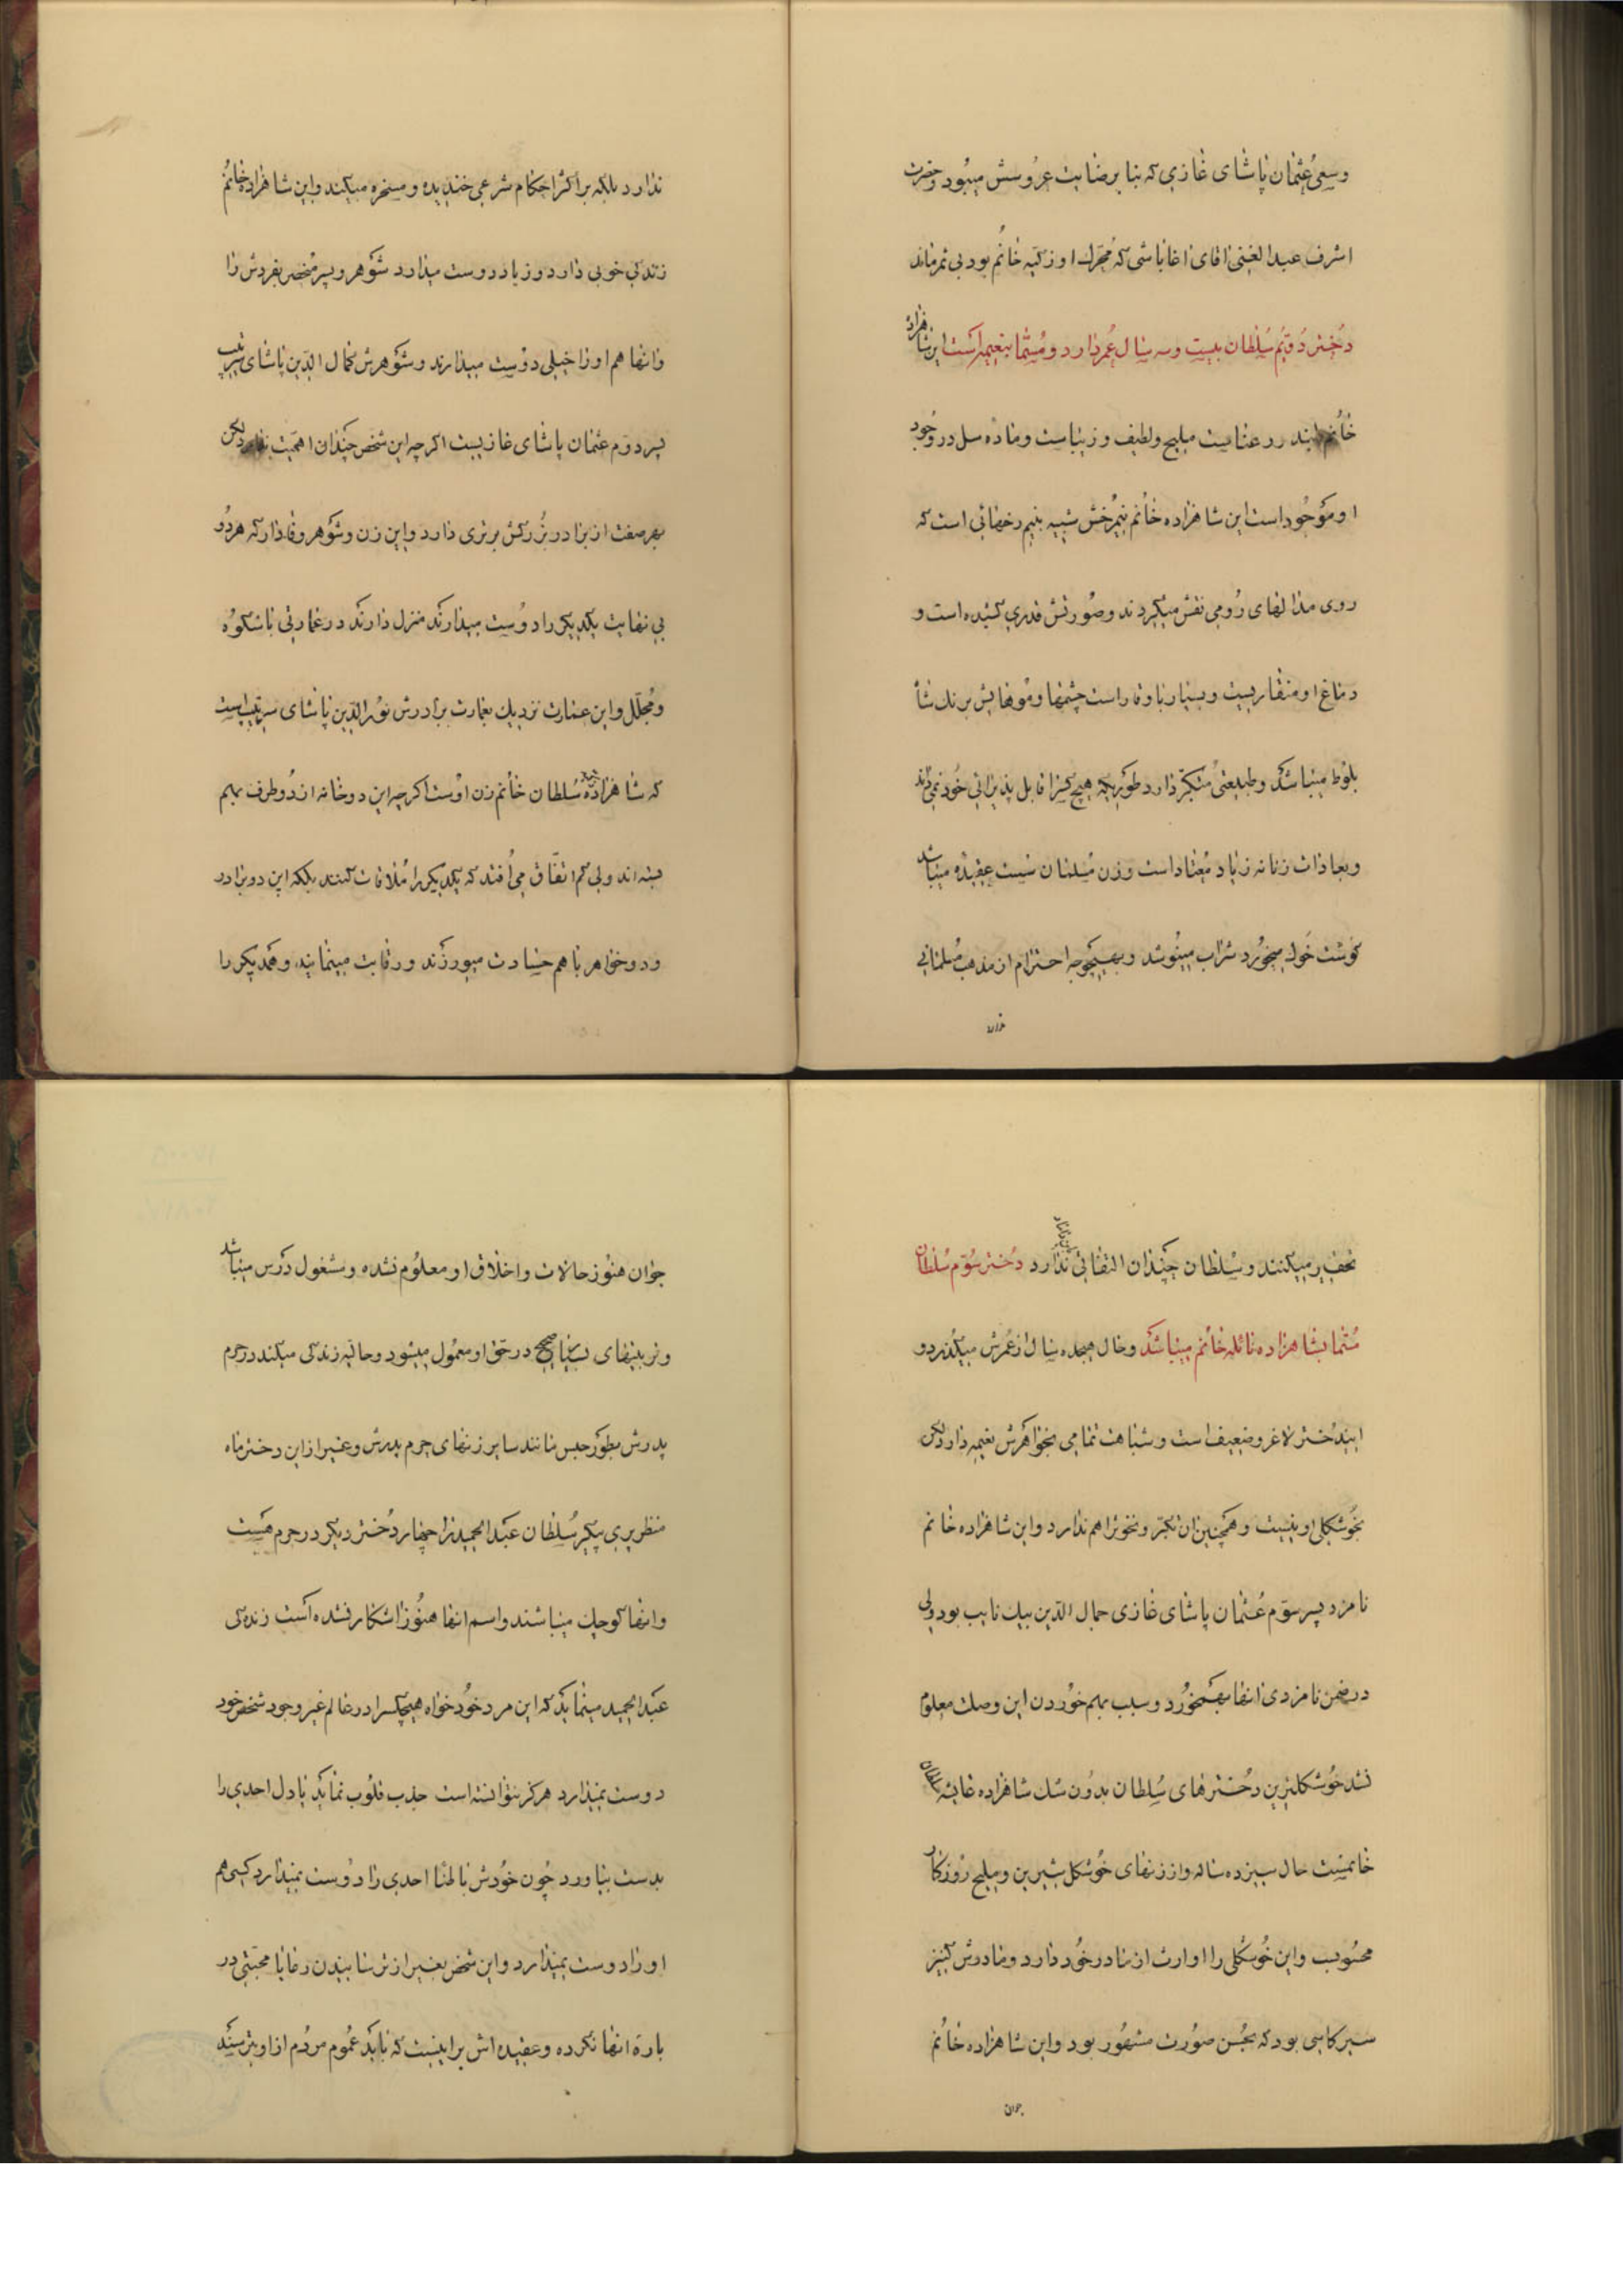 وسعی عثمان پاشای غازی که بنا برضایت عروسش میبود و حضرت
اشرف عبدالغنی اقای اغاباشی که محرک او زکیه خانم بود بی ثمر ماند
دختر دویم سلطان بیست وسه سال عمر دارد و مسما بنعیمه است این شاهزاده
خانم بلند رعناست ملیح ولطیف و زیباست وماده سل در وجود
او موجود است این شاهزاده خانم نیمرخش شبیه بنیم رخهائی است که
روی مدالهای رومی نقش میکردند وصورتش قدری کشیده است و
دماغ او منقاریست و بسیار با وقار است چشمها و موهایش برنک شاه
بلوط میباشد وطبیعتی متکبر دارد طوریکه هیچ کسرا قابل پذیرائی خود نمیداند
وبعادات زنانه زیاد معتاد است وزن مسلمان سست عقیده میباشد
کوشت خوک میخورد شراب مینوشد وبهیچوجه احترام از مذهب مسلمانی
ندارد بلکه بر اکثر احکام شرعی خندیده و مسخره میکند واین شاهزاده خانم
زندکی خوبی دارد و زیاد دوست میدارد شوهر و پسر منحصر بفردش را
وانها هم او را خیلی دوست میدارند وشوهرش کمال الدین پاشای سرتیپ
پسر دوم عثمان پاشای غازیست اکرچه این شخص چندان اهمیت ندارد لکن
بهر صفت از برادر بزرکش برتری دارد واین زن وشوهر وفادار که هر دو
بی نهایت یکدیکر را دوست میدارند منزل دارند در عمارتی با شکوه
ومجلل واین عمارت نزدیک بعمارت برادرش نورالدین پاشای سرتیپ است
که شاهزاده زکیه سلطان خانم زن اوست اکرچه این دو خانه از دو طرف بهم
بسته اند ولی کم اتفاق می افتد که یکدیکر را ملاقات کنند بلکه این دو برادر
و دو خواهر با هم حسادت میورزند ورقابت مینمایند و همدیکر را
تحقیر میکنند وسلطان چندان التفاتی ندارد دختر سوم سلطان
مسما بشاهزاده نائله خانم میباشد وحال هیجده سال از عمرش میکذرد و
ایندختر لاغر وضعیف است وشباهت تمامی بخواهرش نعیمه دارد لکن
بخوشکلی او نیست وهمچنین ان تکبر ونخوترا هم ندارد واین شاهزاده خانم
نامزد پسر سوم عثمان پاشای غازی جمال الدین بیک نایب بود ولی
در ضمن نامزدی انها بهمخورد وسبب بهم خوردن این وصلت معلوم
نشد خوشکلترین دخترهای سلطان بدون شک شاهزاده عایشه سلطان
خانمست حال سیزده ساله واز زنهای خوشکل شیرین وملیح روزکار
محسوب واین خوشکلی را او ارث از مادر خود دارد ومادرش کنیز
سیرکاسی بود که بحسن صورت مشهور بود واین شاهزاده خانم
جوان
جوان هنوز حالات واخلاق او معلوم نشده ومشغول درس میباشد
وتربیتهای بسیار صحیح در حق او معمول میشود وحالیه زندکی میکند در حرم
پدرش بطور حبس مانند سایر زنهای حرم پدرش وغیر از این دختر ماه
منظر پری پیکر سلطان عبدالحمید را چهار دختر دیکر در حرم هست
وانها کوچک میباشند واسم انها هنوز اشکار نشده است زندکی
عبدالحمید مینماید که این مرد خودخواه هیچکس را در عالم غیر وجود شخص خود
دوست نمیدارد هرکز نتوانسته است جذب قلوب نماید یا دل احدی را
بدست بیاورد چون خودش بالمثا احدی را دوست نمیدارد کسی هم
او را دوست نمیدارد واین شخص بغیر از ترسانیدن رعایا محبتی در
باره انها نکرده وعقیده اش براینست که باید عموم مردم از او بترسند